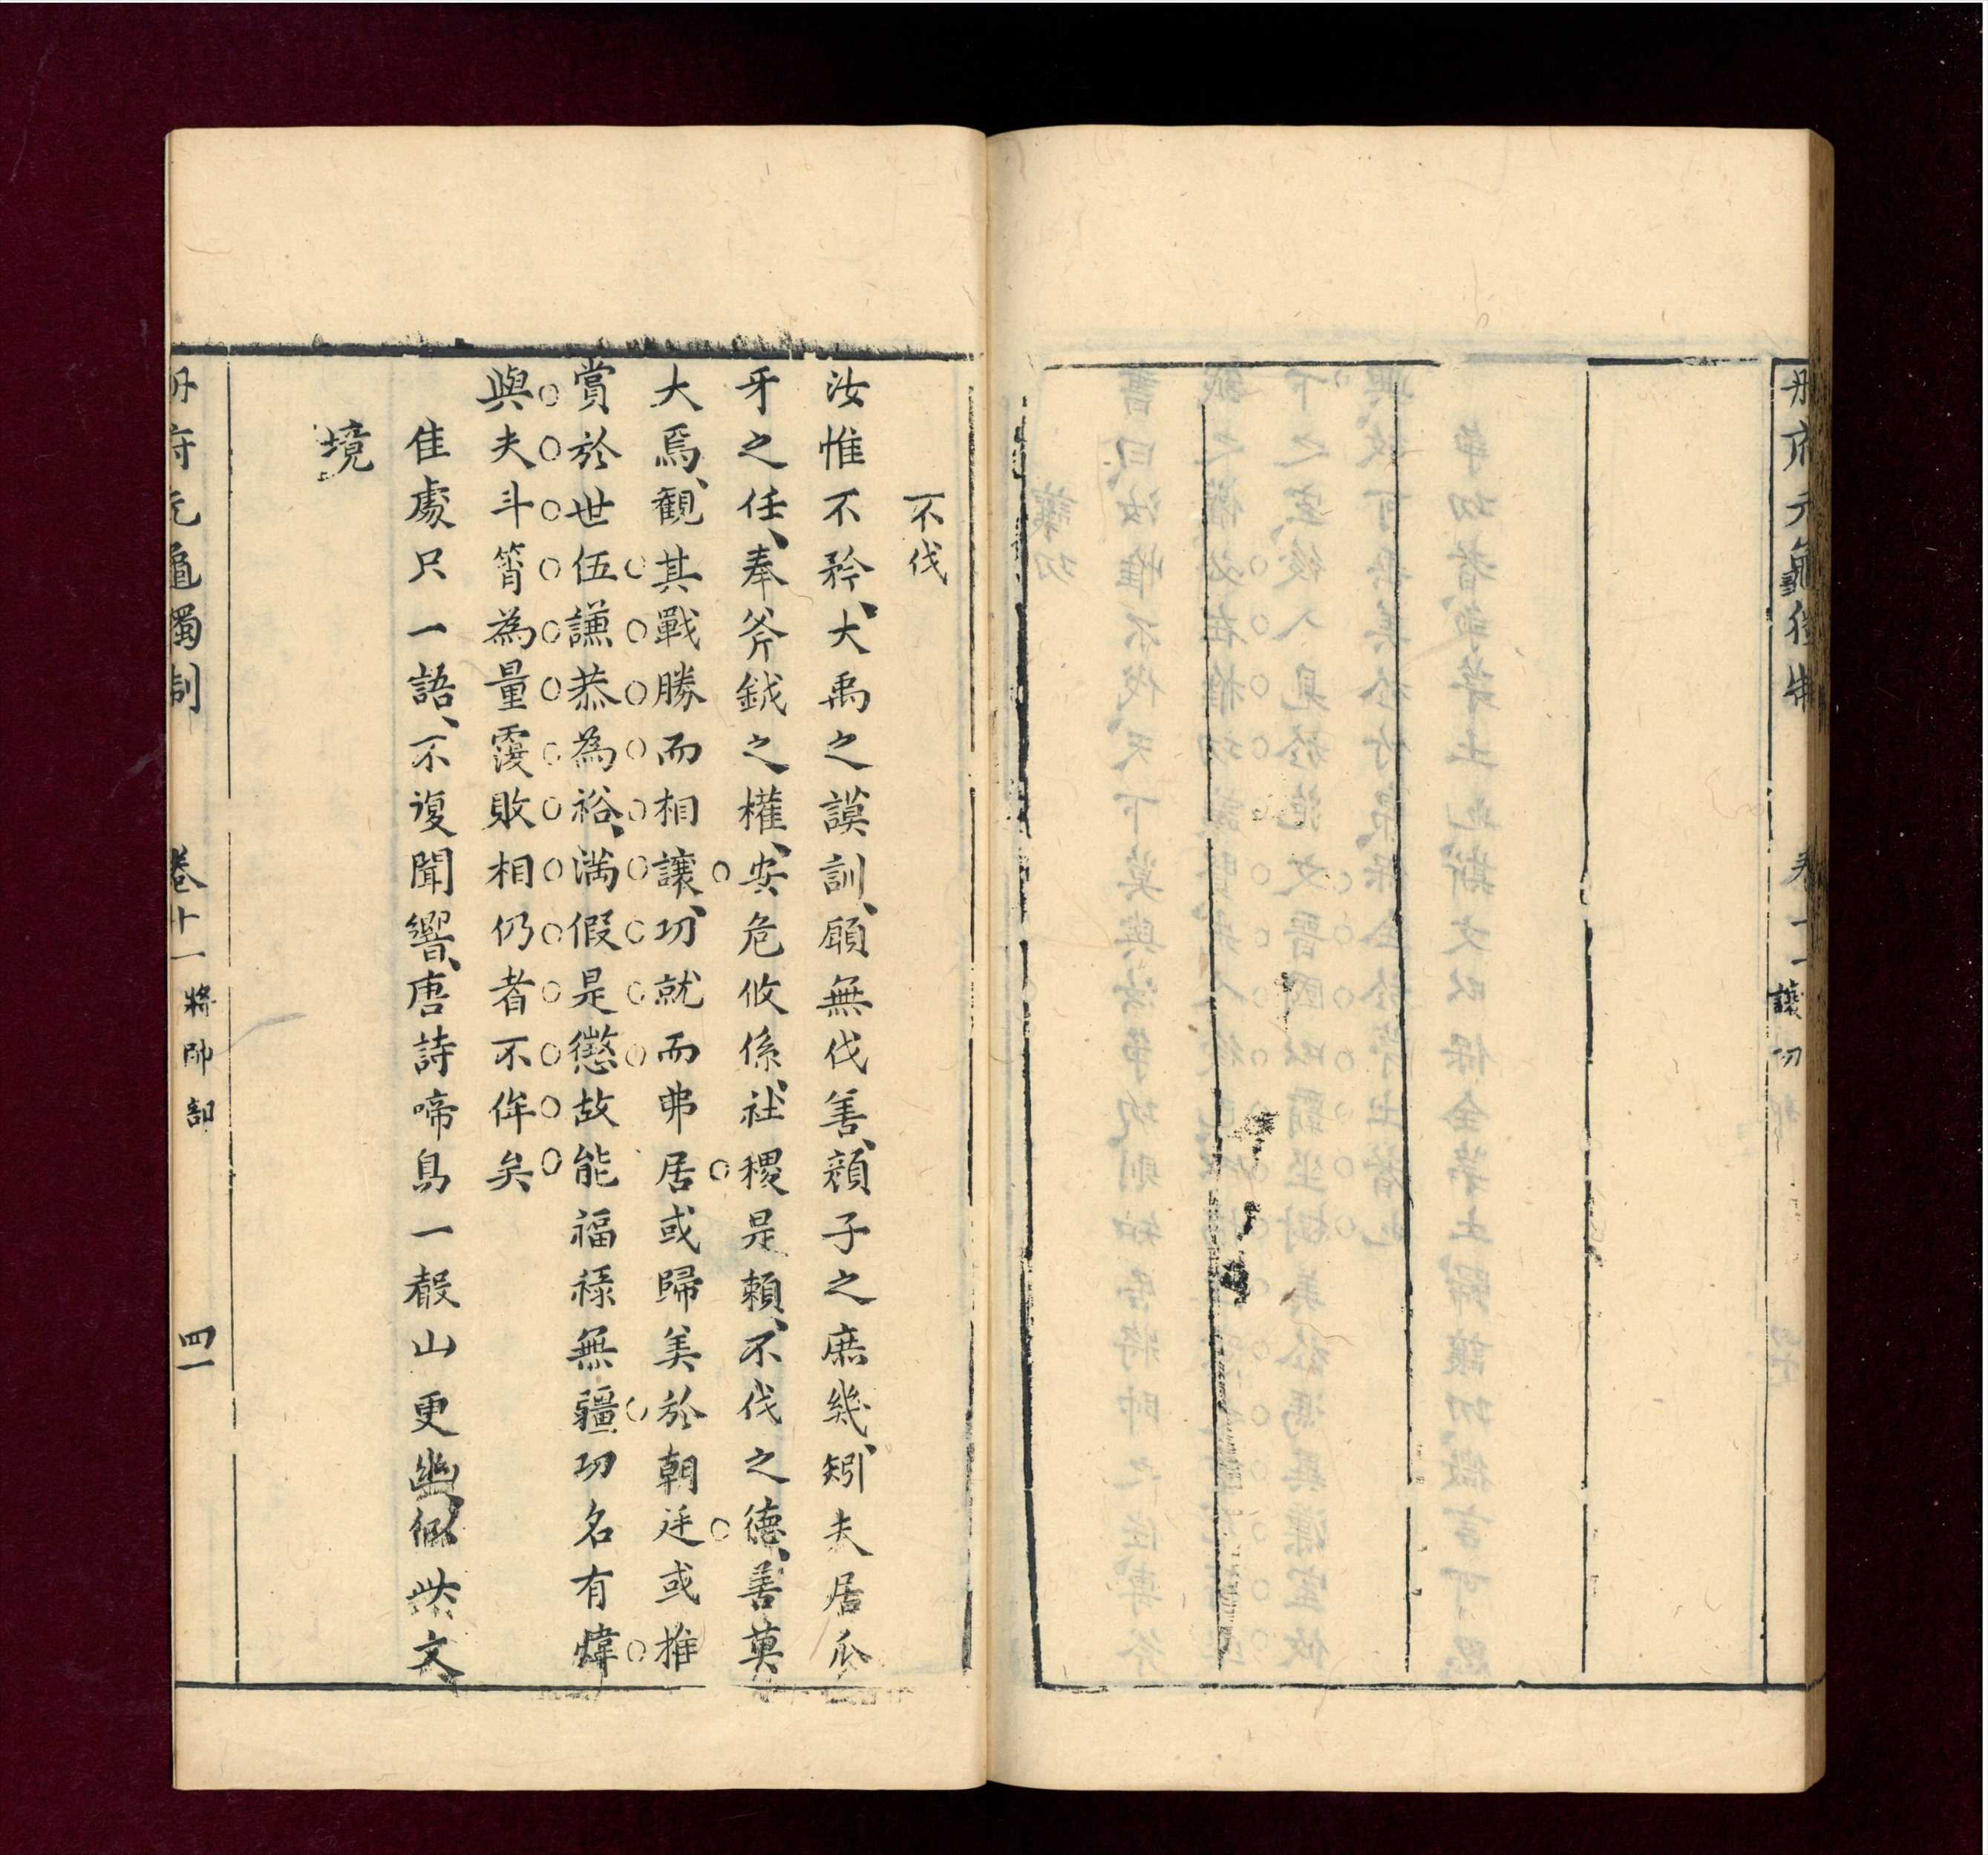 卷十一 讓功
不伐
汝惟不矜、大禹之謨訓、願無伐善、顏子之庶幾、矧夫居爪
牙之任、奉斧鉞之權、安危攸係、社稷是賴、不伐之德、善莫
大焉、觀其戰勝而相讓、功就而弗居或歸美於朝廷或推
賞於世伍謙恭為裕、滿假是懲故能福祿無疆功名有煒
與夫斗筲為量覆敗相仍者不侔矣
佳處只一語、不復聞響、唐詩啼鳥一聲山更幽似此文
境
冊府元龜獨制 卷十一 將帥部 四一